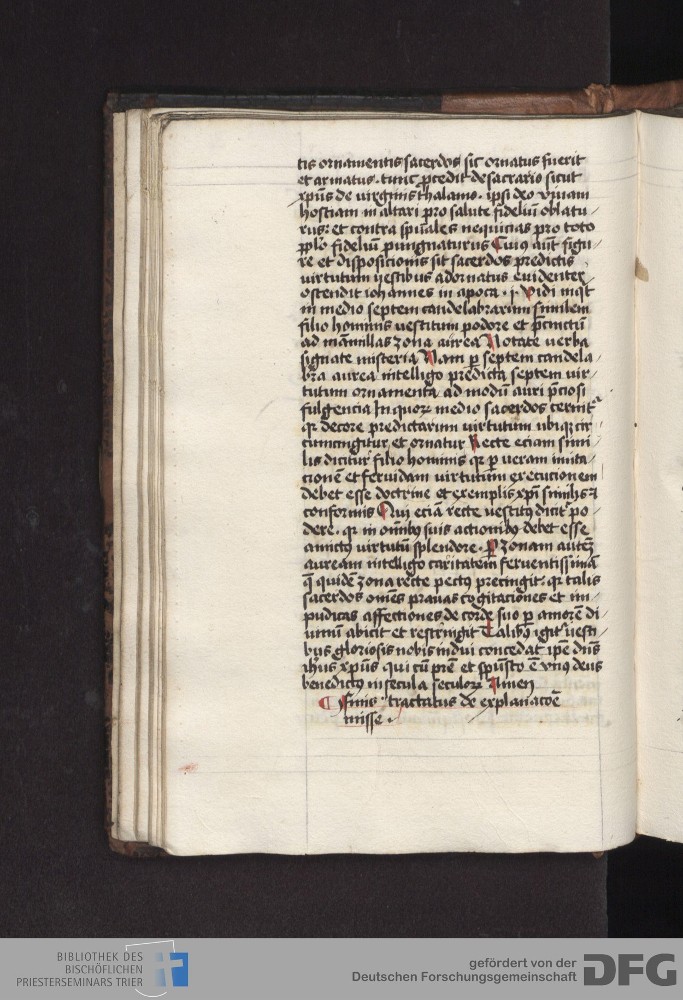 tis ornamentis sacerdos sic ornatus fuerit
et armatus . tunc ꝓcedit de sacrario sicut
xp̄us de virginis thalamo . ipsi deo viuam
hostiam in altari pro salute fideliū oblatu
rus : et contra sp̄uales nequicias pro toto
pp̄lo fideliū pungnaturus Cuius aūt figu
re et disposicionis sit sacerdos predictis
virtutum vestibus adornatus euidenter
ostendit iohannes in apoca . j . vidi inq̄t
in medio septem candelabrarum similem
filio hominis vestitum podore et p̄cinctū
ad mamillas zona aurea Notate verba
signate misteria Nam ꝑ septem candela
bra aurea intelligo predicta septem vir
tutum ornamenta ad modū auri p̄ciosi
fulgencia In quoꝝ medio sacerdos cernit᷑
qꝛ decore predictarum virtutum vbiqꝫ cir
cumcingitur et ornatur Recte eciam simi
lis dicitur filio hominis qꝛ ꝑ veram imita
cionē et feruidam virtutum execucionem
debet esse doctrine et exemplis xp̄i similis ⁊
conformis Qui eciā recte vestitꝰ dicit᷑ po
dere . qꝛ in om̄ibꝰ suis actionibꝰ debet esse
amictꝰ virtutū splendore . Ꝑ zonam autē
auream intelligo caritatem feruentissimā
q̄ quidē zona recte pectꝰ precingit . qꝛ talis
sacerdos om̄es prauas cogitaciones et im
pudicas affectiones de corde suo ꝑ amorē di
uinū abicit et restringit Talibꝰ igit᷑ vesti
bus gloriosis nobis indui concedat ip̄e dn̄s
ihus xp̄us qui cū pr̄e et sp̄usc̄to ē vnus deus
benedictꝰ in secula seculoꝝ Amen
¶ Finis tractatus de explanacōe
misse .
BIBLIOTHEK DES
BISCHÖFLICHEN
PRIESTERSEMINARS TRIER
gefördert von der
Deutschen Forschungsgemeinschaft
DFG